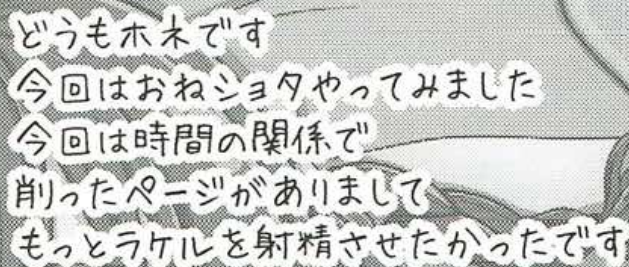 どうもホネです
今回はおねショタやってみました
今回は時間の関係で
削ったページがありまして
もっとラケルを射精させたかったです